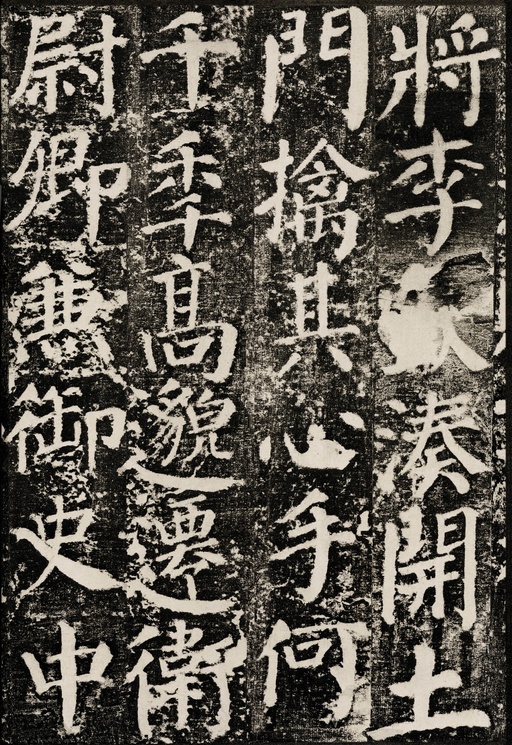 將李湊開土
門擒其心手何
千秊髙邈遷衛
尉卿兼御史中